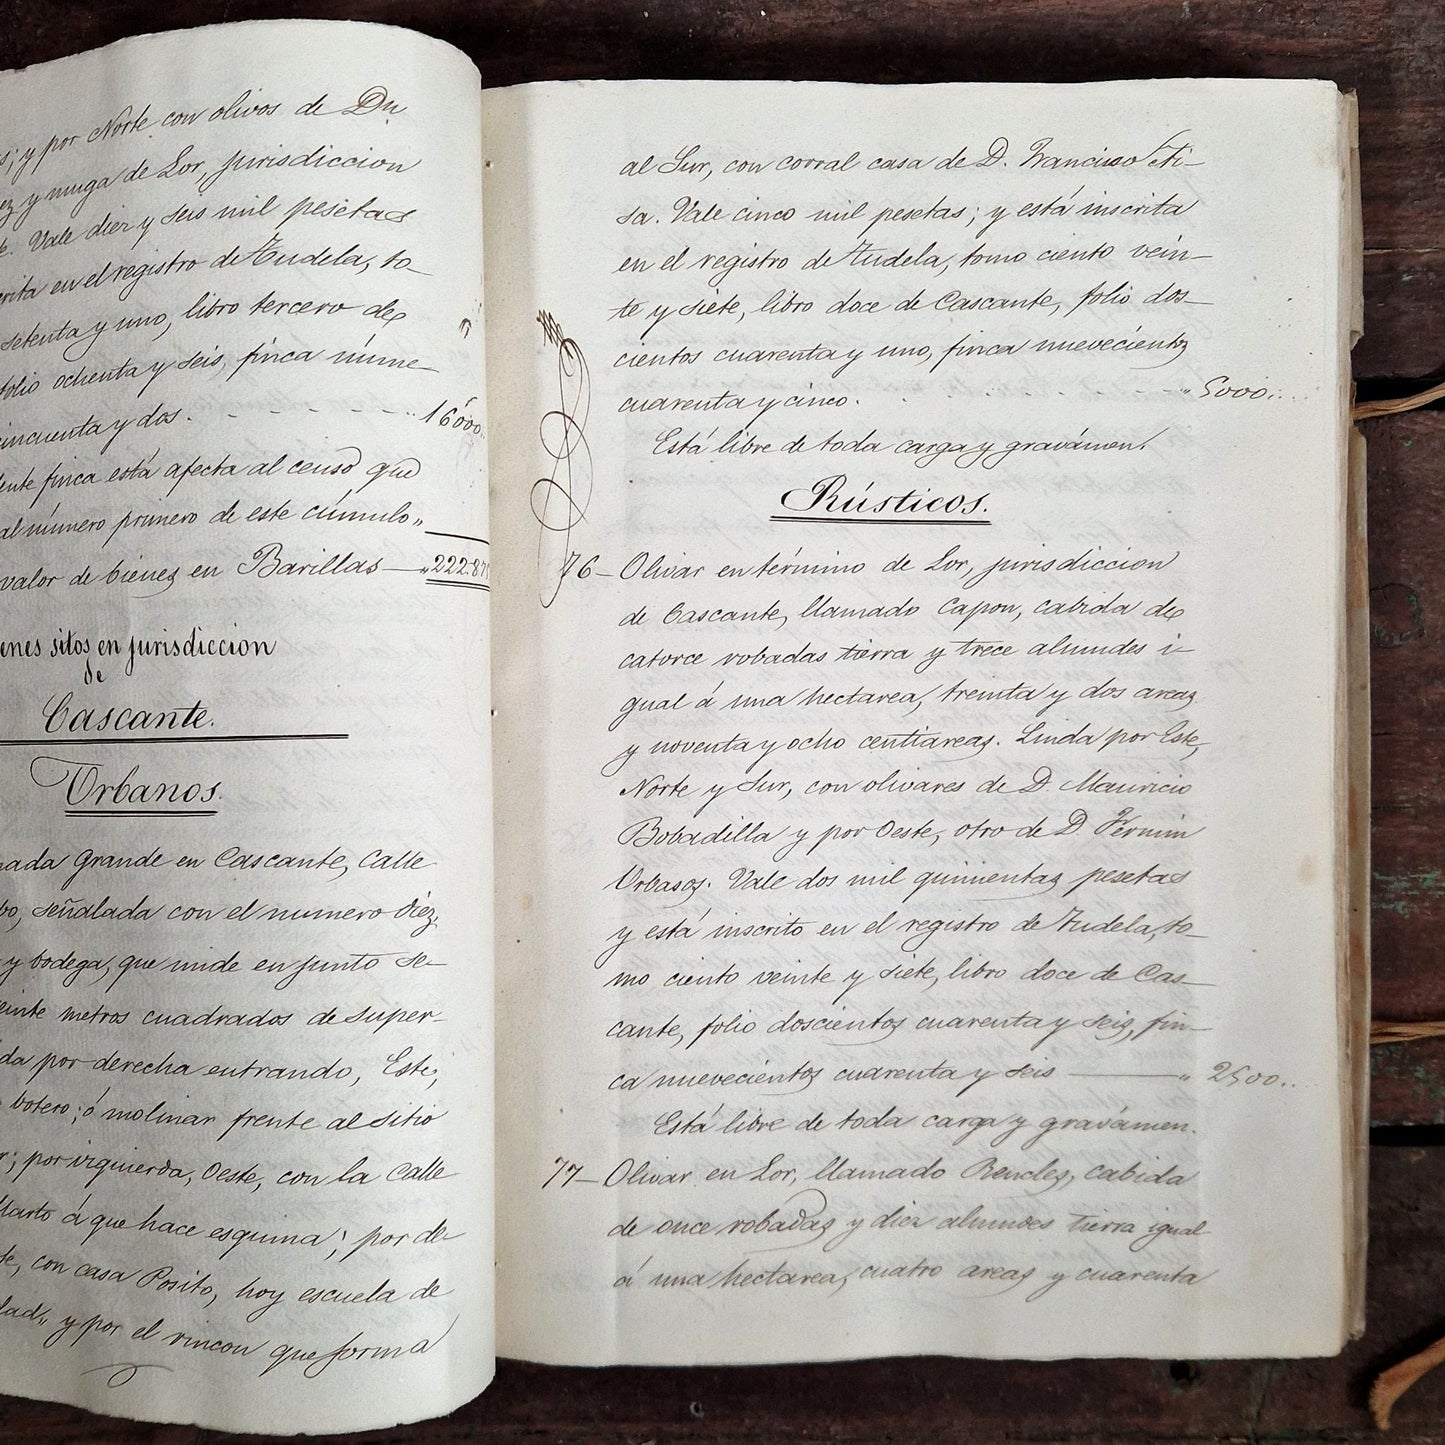 y por Norte con olivos de Du
ez y muga de Lor, jurisdiccion
Vale diez y seis mil pesetas
crita en el registro de Tudela, to-
setenta y uno, libro tercero de
folio ochenta y seis, finca núme-
cincuenta y dos. 16000
ente finca está afecta al censo que
al número primero de este cúmulo"
valor de bienes en Barillas — "222.87
enes sitos en jurisdiccion
de
Cascante.
Urbanos.
nada Grande en Cascante, Calle
bo, señalada con el numero diez,
y bodega, que mide en junto se-
einte metros cuadrados de super-
da por derecha entrando, Este,
botero; ó molinar frente al sitio
r; por izquierda, Oeste, con la Calle
Marto á que hace esquina; por de-
te, con casa Posito, hoy escuela de
dad" y por el rincon que forma
al Sur, con corral casa de D. Francisco Ati-
sa. Vale cinco mil pesetas; y está inscrita
en el registro de Tudela, tomo ciento vein-
te y siete, libro doce de Cascante, folio dos-
cientos cuarenta y uno, finca nuevecientos
cuarenta y cinco. " 5000
Está libre de toda carga y gravámen.
Rústicos.
76- Olivar en término de Lor, jurisdiccion
de Cascante, llamado Capon, cabida de
catorce robadas tierra y trece almudes i-
gual á una hectarea, treinta y dos areas
y noventa y ocho centiareas. Linda por Este,
Norte y Sur, con olivares de D. Mauricio
Bobadilla y por Oeste, otro de D. Fermin
Urbasos. Vale dos mil quinientas pesetas
y está inscrito en el registro de Tudela, to-
mo ciento veinte y siete, libro doce de Cas-
cante, folio doscientos cuarenta y seis, fin-
ca nuevecientos cuarenta y seis — " 2500..
Está libre de toda carga y gravámen.
77- Olivar en Lor, llamado Rencles, cabida
de once robadas y diez almudes tierra igual
á una hectarea, cuatro areas y cuarenta